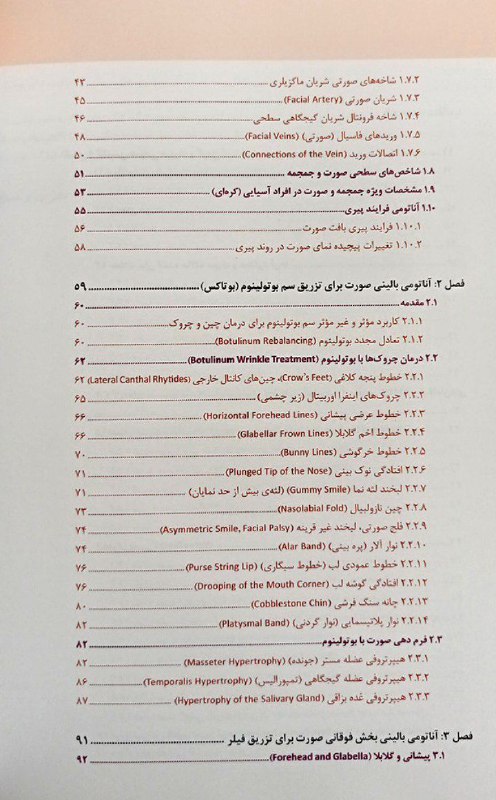 ۱.۷.۲ شاخه‌های صورتی شریان ماگزیلاری ۴۳
۱.۷.۳ شریان صورتی (Facial Artery) ۴۵
۱.۷.۴ شاخه فرونتال شریان گیجگاهی سطحی ۴۶
۱.۷.۵ وریدهای فاسیال (صورتی) (Facial Veins) ۴۸
۱.۷.۶ اتصالات ورید (Connections of the Vein) ۵۰
۱.۸ شاخص‌های سطحی صورت و جمجمه ۵۱
۱.۹ مشخصات ویژه جمجمه و صورت در افراد آسیایی (کره‌ای) ۵۳
۱.۱۰ آناتومی فرایند پیری ۵۵
۱.۱۰.۱ فرایند پیری بافت صورت ۵۶
۱.۱۰.۲ تغییرات پیچیده نمای صورت در روند پیری ۵۸
فصل ۲: آناتومی بالینی صورت برای تزریق سم بوتولینوم (بوتاکس) ۵۹
۲.۱ مقدمه ۶۰
۲.۱.۱ کاربرد مؤثر و غیر مؤثر سم بوتولینوم برای درمان چین و چروک ۶۰
۲.۱.۲ تعادل مجدد بوتولینوم (Botulinum Rebalancing) ۶۰
۲.۲ درمان چروک‌ها با بوتولینوم (Botulinum Wrinkle Treatment) ۶۲
۲.۲.۱ خطوط پنجه کلاغی (Crow's Feet)، چین‌های کانتال خارجی (Lateral Canthal Rhytides) ۶۲
۲.۲.۲ چروک‌های اینفرا اوربیتال (زیر چشمی) ۶۵
۲.۲.۳ خطوط عرضی پیشانی (Horizontal Forehead Lines) ۶۶
۲.۲.۴ خطوط اخم گلابلا (Glabellar Frown Lines) ۶۶
۲.۲.۵ خطوط خرگوشی (Bunny Lines) ۷۰
۲.۲.۶ افتادگی نوک بینی (Plunged Tip of the Nose) ۷۱
۲.۲.۷ لبخند لثه نما (Gummy Smile) (لثه‌ی بیش از حد نمایان) ۷۱
۲.۲.۸ چین نازولبیال (Nasolabial Fold) ۷۳
۲.۲.۹ فلج صورتی، لبخند غیر قرینه (Asymmetric Smile, Facial Palsy) ۷۴
۲.۲.۱۰ نوار آلار (پره بینی) (Alar Band) ۷۴
۲.۲.۱۱ خطوط عمودی لب (خطوط سیگاری) (Purse String Lip) ۷۶
۲.۲.۱۲ افتادگی گوشه لب (Drooping of the Mouth Corner) ۷۶
۲.۲.۱۳ چانه سنگ فرشی (Cobblestone Chin) ۸۰
۲.۲.۱۴ نوار پلاتیسمایی (نوار گردنی) (Platysmal Band) ۸۲
۲.۳ فرم دهی صورت با بوتولینوم ۸۲
۲.۳.۱ هیپرتروفی عضله مستر (جونده) (Masseter Hypertrophy) ۸۲
۲.۳.۲ هیپرتروفی عضله گیجگاهی (تمپورالیس) (Temporalis Hypertrophy) ۸۶
۲.۳.۳ هیپرتروفی غده بزاقی (Hypertrophy of the Salivary Gland) ۸۷
فصل ۳: آناتومی بالینی بخش فوقانی صورت برای تزریق فیلر ۹۱
۳.۱ پیشانی و گلابلا (Forehead and Glabella) ۹۲